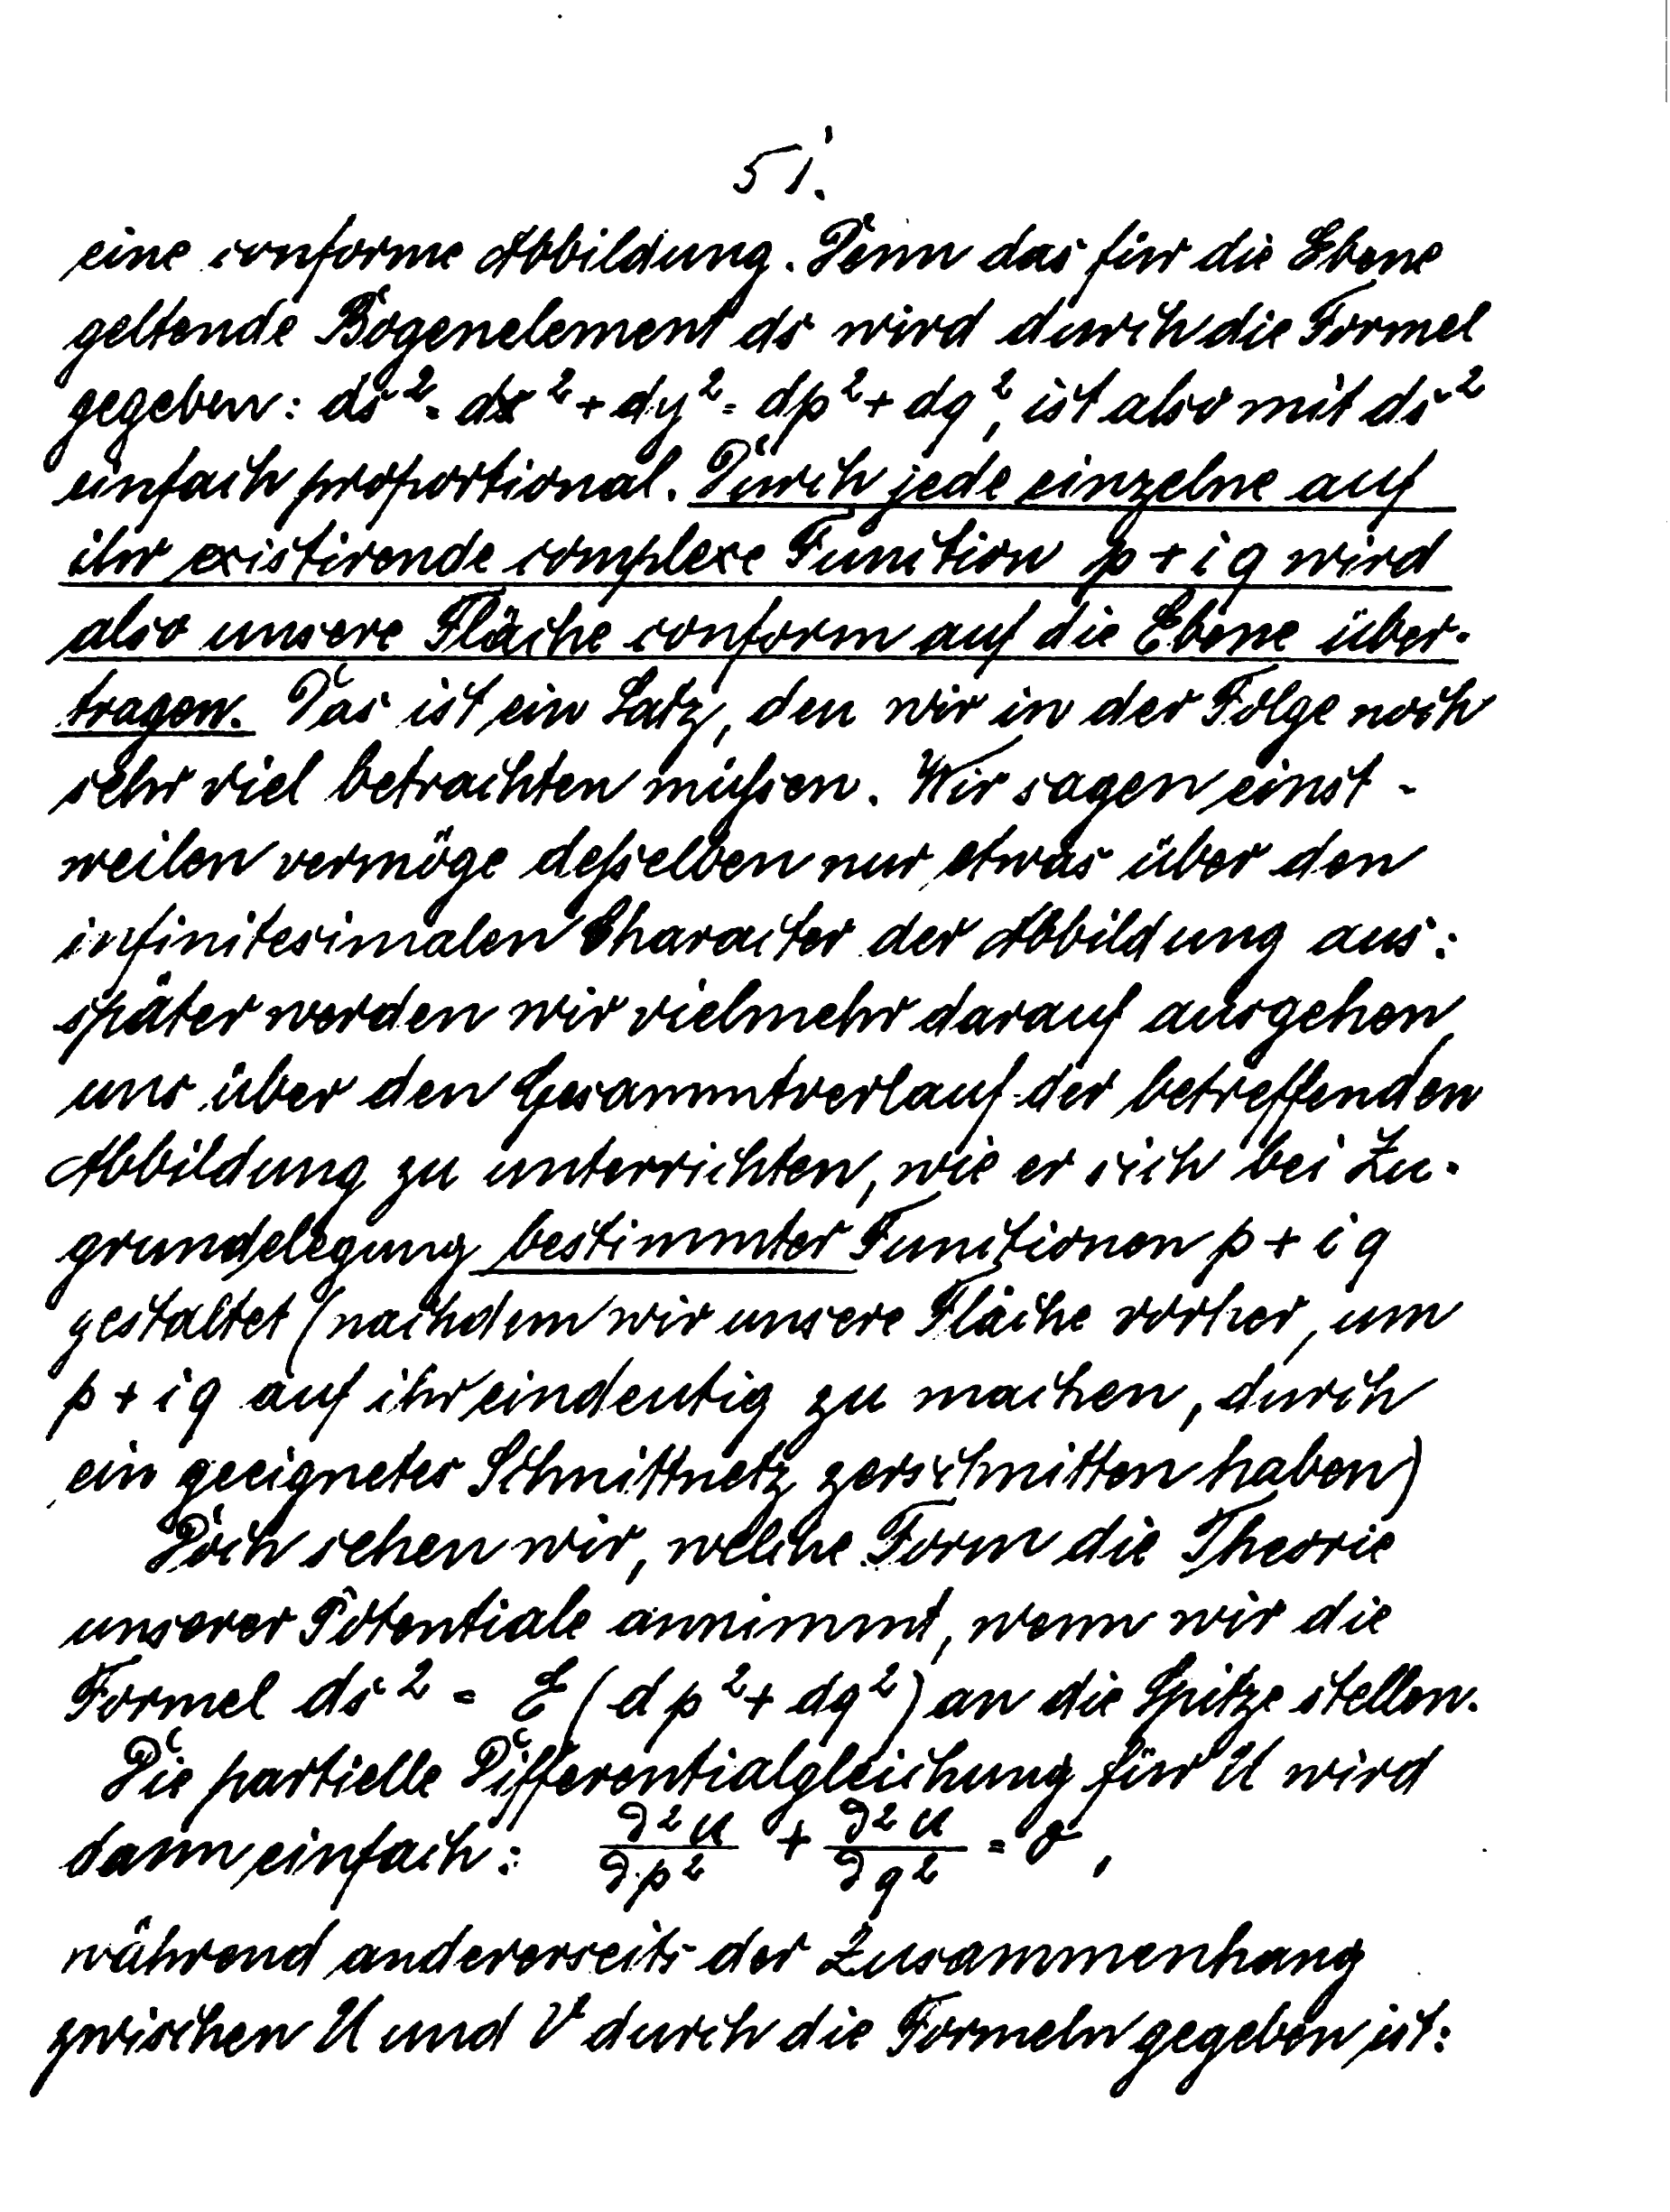 51.
eine conforme Abbildung. Denn das für die Ebene
geltende Bogenelement ds wird durch die Formel
gegeben: ds² = dx² + dy² = dp² + dq², ist also mit ds²
einfach proportional. Durch jede einzelne auf
ihr existirende complexe Function p + iq wird
also unsere Fläche conform auf die Ebene über-
tragen. Das ist ein Satz, den wir in der Folge noch
sehr viel betrachten müssen. Wir sagen einst-
weilen vermöge desselben nur etwas über den
infinitesimalen Character der Abbildung aus:
später werden wir vielmehr darauf ausgehen,
uns über den Gesammtverlauf der betreffenden
Abbildung zu unterrichten, wie er sich bei Zu-
grundelegung bestimmter Functionen p + iq
gestaltet (nachdem wir unsere Fläche vorher, um
p + iq auf ihr eindeutig zu machen, durch
ein geeignetes Schnittnetz zerschnitten haben)
Doch sehen wir, welche Form die Theorie
unserer Potentiale annimmt, wenn wir die
Formel ds² = E (dp² + dq²) an die Spitze stellen.
Die partielle Differentialgleichung für U wird
dann einfach: ∂²U/∂p² + ∂²U/∂q² = 0,
während andererseits der Zusammenhang
zwischen U und V durch die Formeln gegeben ist: